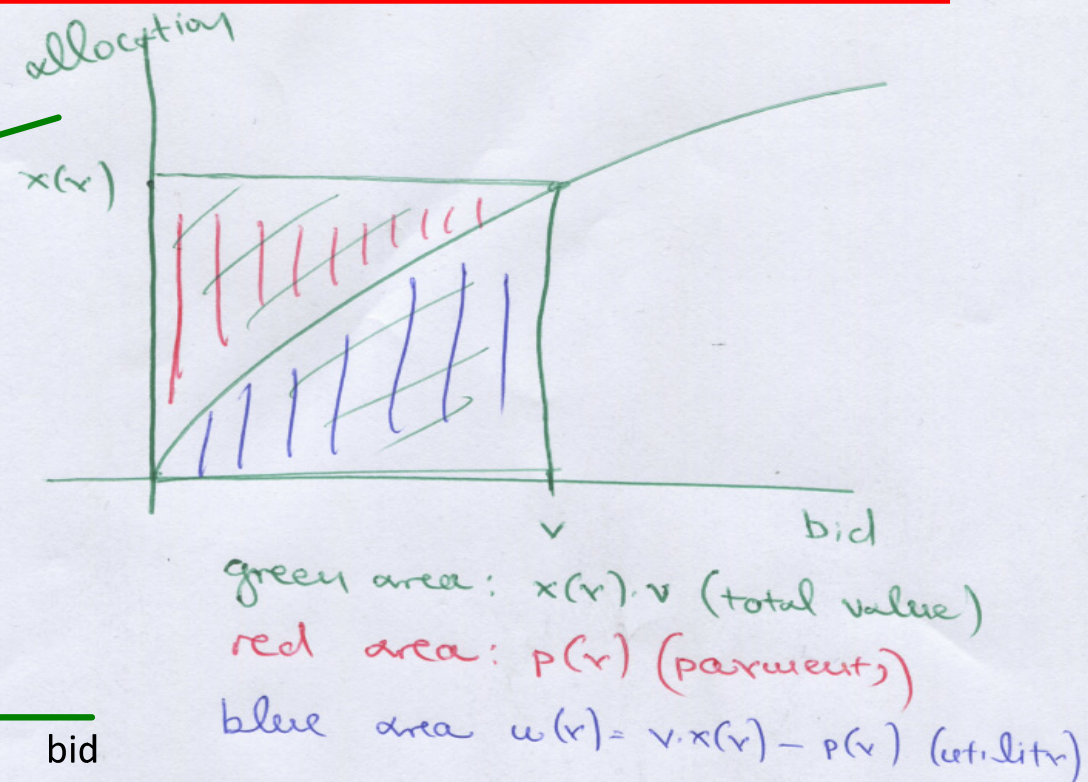 allocation
x(v)
v
bid
green area: x(v).v (total value)
red area: p(v) (payment)
blue area u(v) = v.x(v) - p(v) (utility)
bid